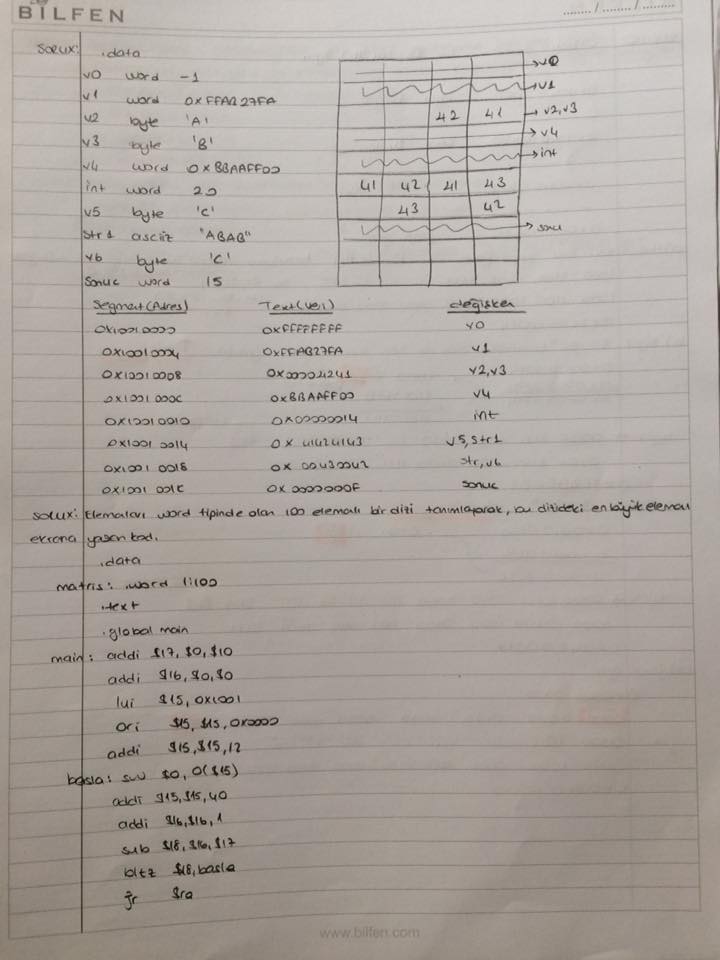 BİLFEN
......../......../........
soru x: .data
v0 word -1
v1 word 0xFFAB27FA
v2 byte 'A'
v3 byte 'B'
v4 word 0xBBAAFF00
int word 20
v5 byte 'C'
str1 asciiz "ABAB"
v6 byte 'C'
Sonuc word 15
v0
v1
42 41 v2,v3
v4
int
41 42 41 43
43 42
sonu
Segment(Adres) Text(veri) değişken
0x10010000 0xFFFFFFFF v0
0x10010004 0xFFAB27FA v1
0x10010008 0x00004241 v2,v3
0x1001000C 0xBBAAFF00 v4
0x10010010 0x00000014 int
0x10010014 0x41424143 v5,str1
0x10010018 0x00430042 str,v6
0x1001001C 0x0000000F sonuc
soru x: Elemanları word tipinde olan 100 elemalı bir dizi tanımlayarak, bu dizideki en büyük elemanı
ekrana yazan kod.
.data
matris: .word 1:100
.text
.global main
main: addi $17, $0, $10
addi $16, $0, $0
lui $15, 0x1001
ori $15, $15, 0x0000
addi $15, $15, 12
basla: sw $0, 0($15)
addi $15, $15, 40
addi $16, $16, 1
sub $18, $16, $17
bltz $18, basla
jr $ra
www.bilfen.com